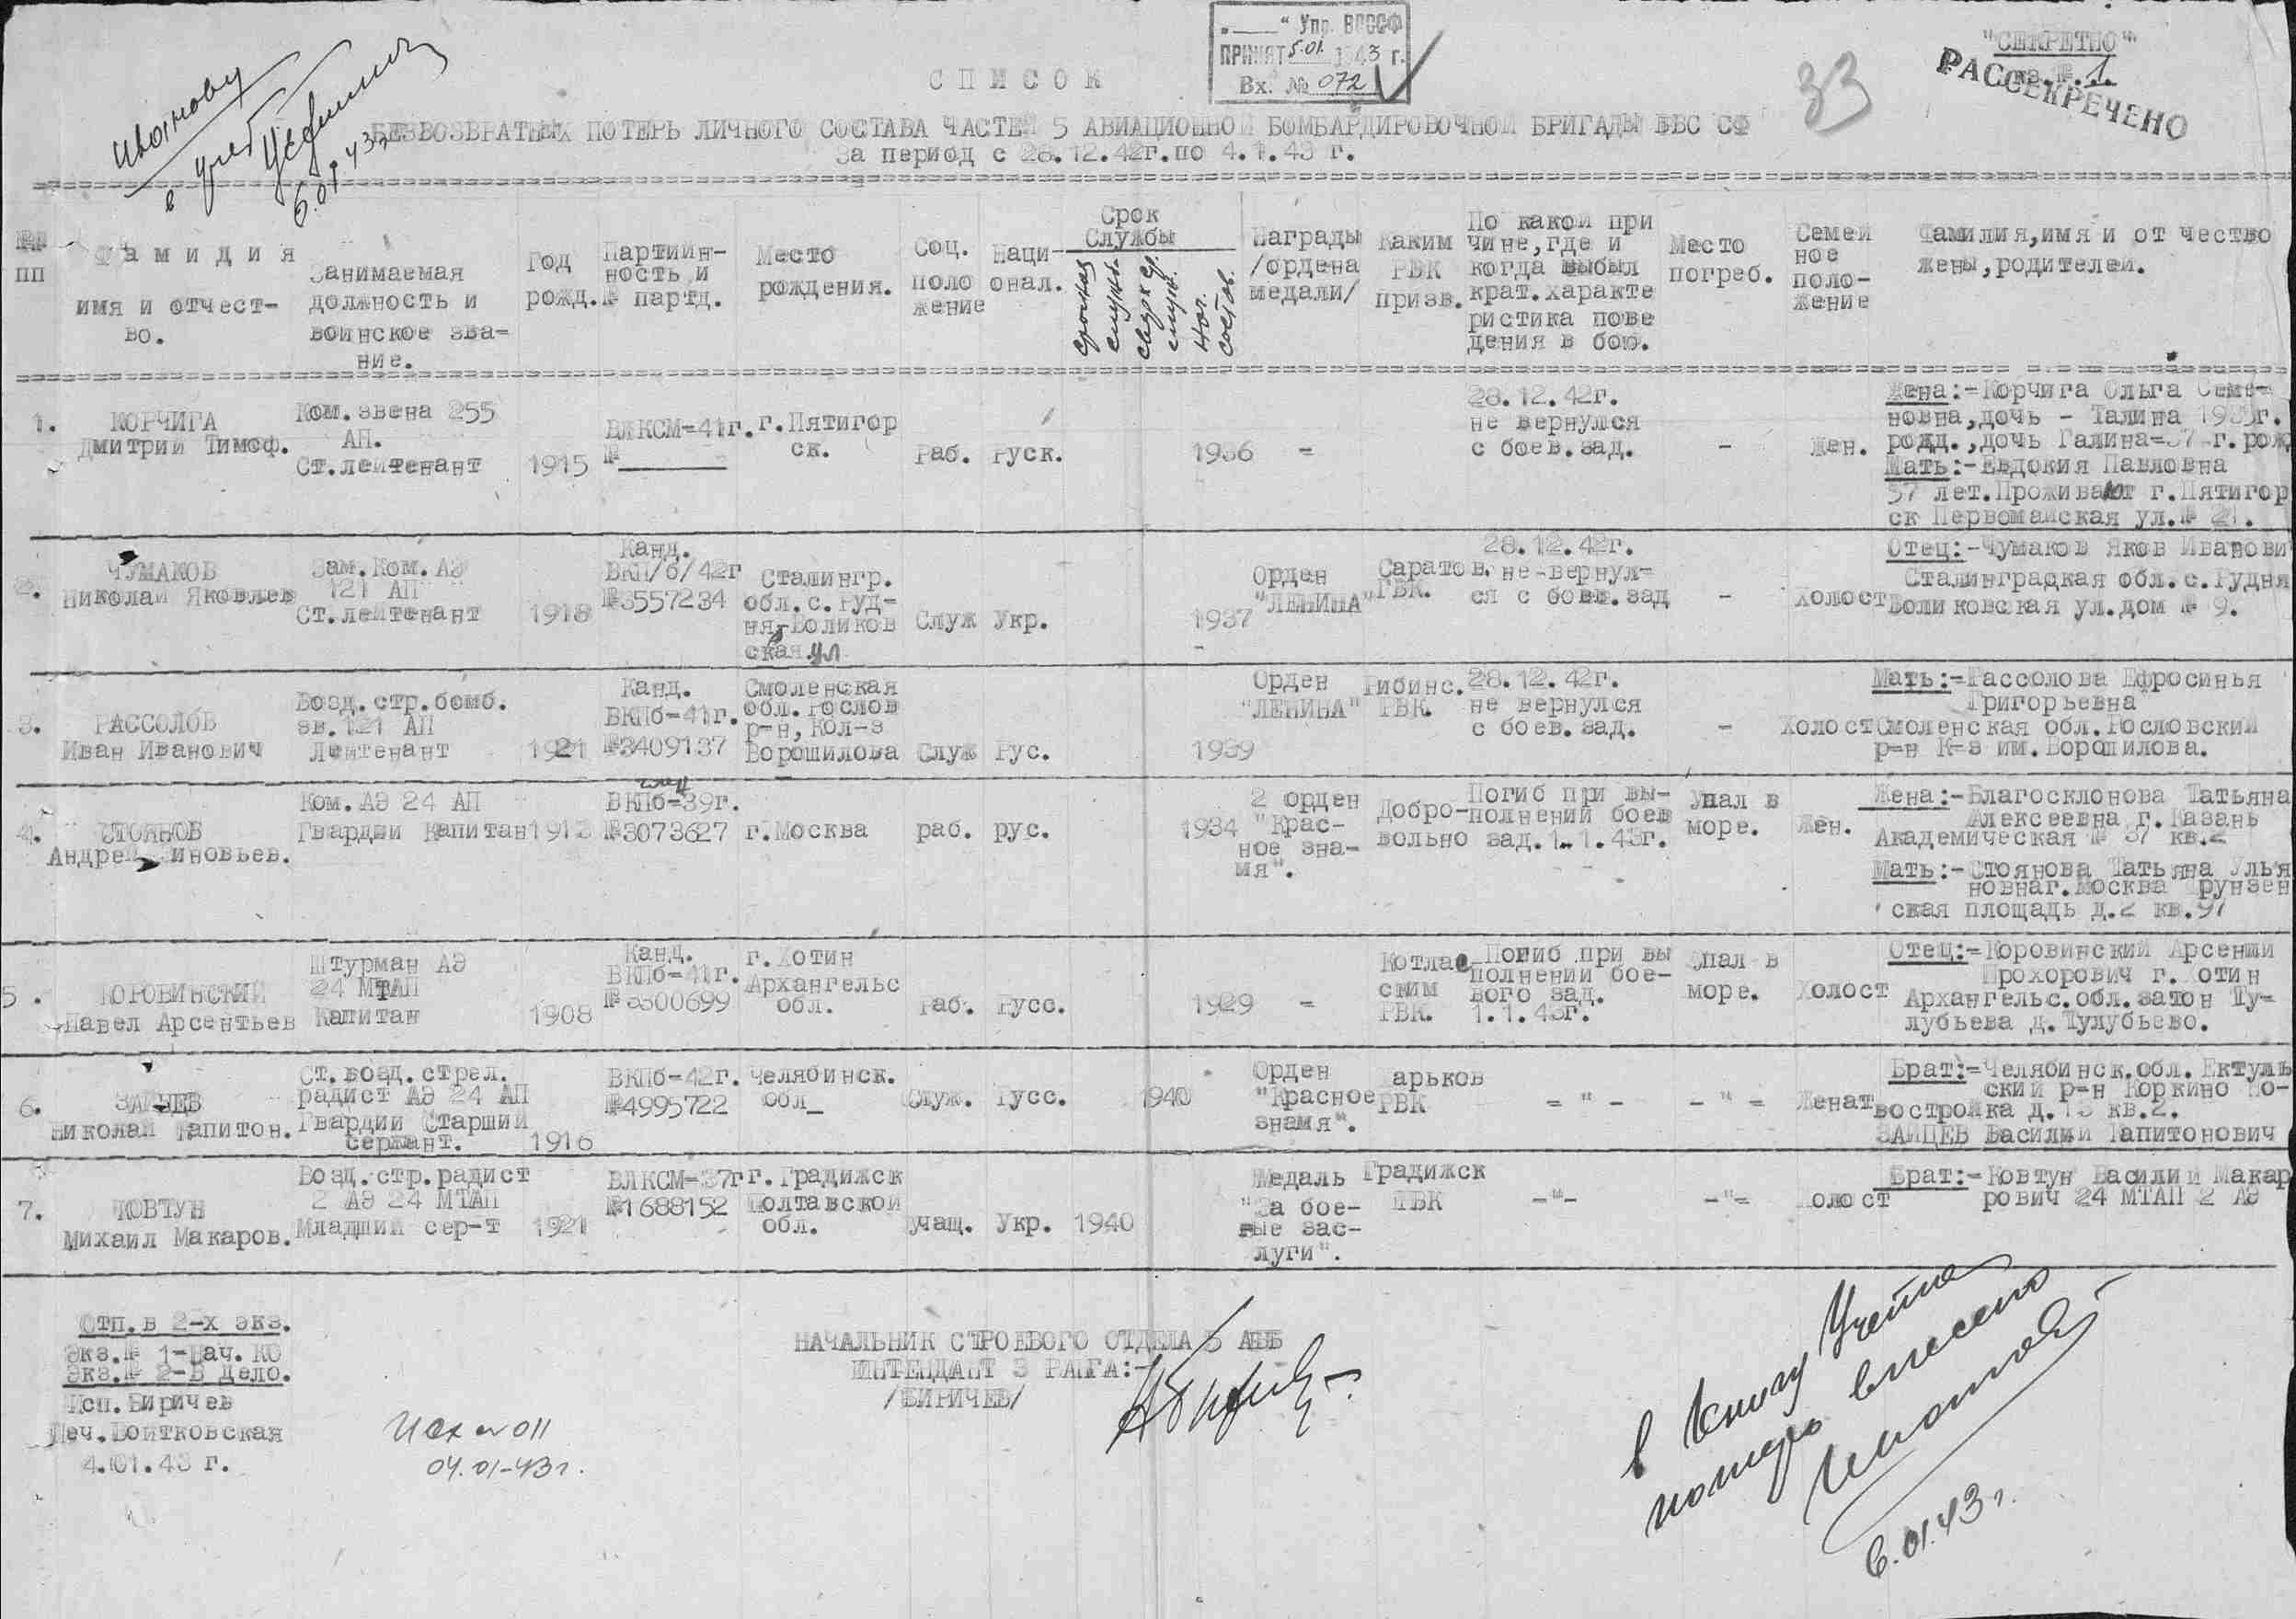 "____" Упр. ВВССФ
ПРИНЯТ 5.01. 1943 г.
Вх. № 072
"СЕКРЕТНО"
экз. № 1.
РАССЕКРЕЧЕНО
33
Иванову
в учет
6.01.43г
СПИСОК
БЕЗВОЗВРАТНЫХ ПОТЕРЬ ЛИЧНОГО СОСТАВА ЧАСТЕЙ 5 АВИАЦИОННОЙ БОМБАРДИРОВОЧНОЙ БРИГАДЫ ВВС СФ
За период с 28.12.42г. по 4.1.43 г.
№№ пп
Фамидия имя и отчест-во.
Занимаемая должность и воинское зва-ние.
Год рожд.
Партийн-ность и № партд.
Место рождения.
Соц. поло жение
Наци-онал.
Срок Службы
срочная служб.
сверх ср. служ.
нач. состав.
Награды /ордена медали/
Каким РВК призв.
По какой при чине, где и когда выбыл крат. характе ристика пове дения в бою.
Место погреб.
Семей ное поло-жение
Фамилия, имя и от чество жены, родителей.
1.
КОРЧИГА
Дмитрий Тимоф.
Ком. звена 255
АП.
Ст. лейтенант
1915
ВЛКСМ-41г.
№
г. Пятигор
ск.
Раб.
Руск.
1936
-
28.12.42г.
не вернулся
с боев. зад.
-
Жен.
Жена:-Корчига Ольга Семе-
новна, дочь - Талина 1935г.
рожд., дочь Галина-37-г. рож
Мать:-Евдокия Павловна
57 лет. Проживают г. Пятигор
ск Первомайская ул. № 21.
2.
ЧУМАКОВ
Николай Яковлев
Зам. Ком. АЭ
121 АП
Ст. лейтенант
1918
Канд.
ВКП/б/42г
№3557234
Сталингр.
обл. с. Руд-
ня, Воликов
ская ул
Служ
Укр.
1937
Орден
"ЛЕНИНА"
Саратов.
ГВК.
28.12.42г.
не-вернул-
ся с боев. зад
-
Холост
Отец:-Чумаков Яков Иванови
Сталинградкая обл. с. Рудня
Воликовская ул. дом № 9.
3.
РАССОЛОВ
Иван Иванович
Возд. стр. бомб.
зв. 121 АП
Лейтенант
1921
Канд.
ВКПб-41г.
№3409137
Смоленская
обл. Рослов
р-н, Кол-з
Ворошилова
Служ
Рус.
1939
Орден
"ЛЕНИНА"
Рибинс.
РВК.
28.12.42г.
не вернулся
с боев. зад.
-
Холост
Мать:-Рассолова Ефросинья
Григорьевна
Смоленская обл. Рословский
р-н К-з им. Ворошилова.
4.
СТОЯНОВ
Андрей Зиновьев.
Ком. АЭ 24 АП
Гвардии Капитан
1913
член
ВКПб-39г.
№3073627
г. Москва
раб.
рус.
1934
2 орден
"Крас-
ное зна-
мя".
Добро-
вольно
Погиб при вы-
полнении боев
зад. 1.1.43г.
Упал в
море.
Жен.
Жена:-Благосклонова Татьяна
Алексеевна г. Казань
Академическая № 37 кв.2
Мать:-Стоянова Татьяна Улья
новнаг. Москва Фрунзен
ская площадь д.2 кв.97
5.
КОРОВИНСКИЙ
Павел Арсентьев
Штурман АЭ
24 МТАП
Капитан
1908
Канд.
ВКПб-41г.
№3500699
г. Котин
Архангельс
обл.
Раб.
Русс.
1929
-
Котлас
ским
РВК.
Погиб при вы
полнении бое-
вого зад.
1.1.43г.
Упал в
море.
Холост
Отец:-Коровинский Арсений
Прохорович г. Котин
Архангельс. обл. затон Шу-
лубьева д. Шулубьево.
6.
ЗАЙЦЕВ
Николай Капитон.
Ст. возд. стрел.
радист АЭ 24 АП
Гвардии Старший
сержант.
1916
ВКПб-42г.
№4995722
Челябинск.
обл_
Служ.
Русс.
1940
Орден
"Красное
знамя".
Харьков
РВК
- " -
- " -
Женат
Брат:-Челябинск. обл. Ектуль
ский р-н Коркино Но-
востройка д.13 кв.2.
ЗАЙЦЕВ Василий Капитонович
7.
КОВТУН
Михаил Макаров.
Возд. стр. радист
2 АЭ 24 МТАП
Младший сер-т
1921
ВЛКСМ-37г
№1688152
г. Градижск
Полтавской
обл.
учащ.
Укр.
1940
Медаль
"За бое-
вые зас-
луги".
Градижск
РВК
-"-
-"-
Холост
Брат:-Ковтун Василий Макар
рович 24 МТАП 2 АЭ
Отп. в 2-х экз.
Экз. № 1-Нач. КО
Экз. № 2-В Дело.
Исп. Биричев
Печ. Войтковская
4.01.43 г.
Исх № 011
04.01-43г.
НАЧАЛЬНИК СТРОЕВОГО ОТДЕЛА 5 АББ
ИНТЕНДАНТ 3 РАНГА:-
/БИРИЧЕВ/
В книгу учета
потерь внесено
6.01.43г.